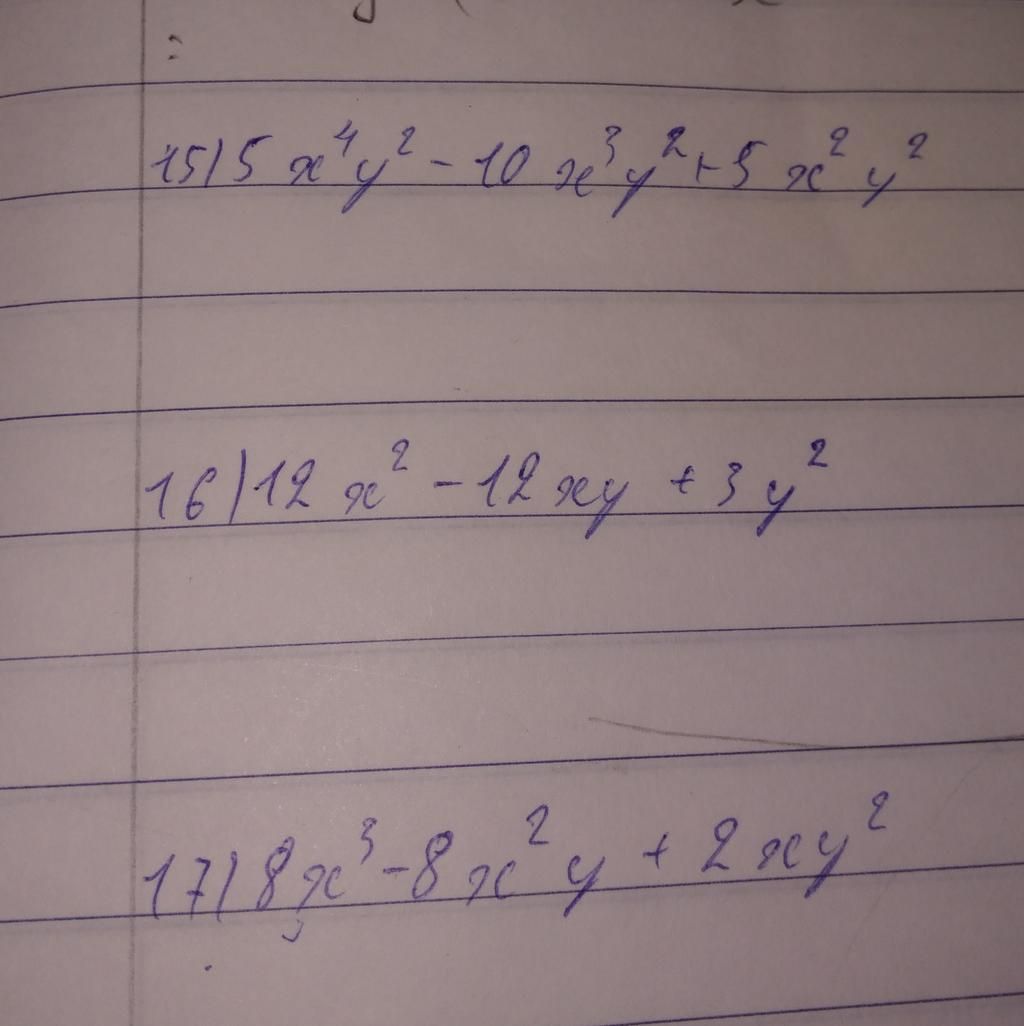 15) 5x⁴y² - 10x³y² + 5x²y²
16) 12x² - 12xy + 3y²
17) 8x³ - 8x²y + 2xy²